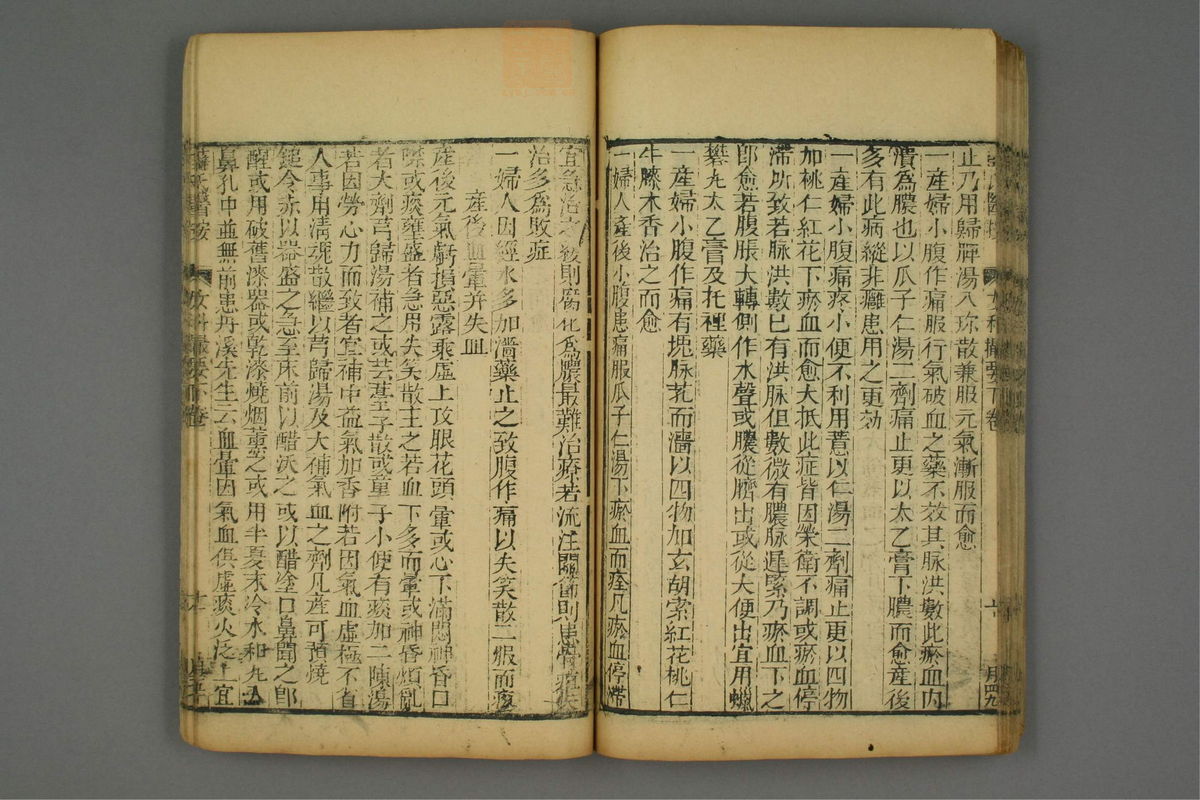 止乃用歸脾湯八珍散兼服元氣漸服而愈
一產婦小腹作痛服行氣破血之藥不效其脉洪數此瘀血內
潰爲膿也以瓜子仁湯二劑痛止更以太乙膏下膿而愈產後
多有此病縱非癰患用之更効
一產婦小腹痛疼小便不利用薏以仁湯二劑痛止更以四物
加桃仁紅花下瘀血而愈大抵此症皆因榮衛不調或瘀血停
滯所致若脉洪數已有洪脉但數微有膿脉遲緊乃瘀血下之
卽愈若腹脹大轉側作水聲或膿從臍出或從大便出宜用蠟
礬丸太乙膏及托裡藥
一產婦小腹作痛有塊脉芤而濇以四物加玄胡索紅花桃仁
牛膝木香治之而愈
一婦人產後小腹患痛服瓜子仁湯下瘀血而痊凡瘀血停滯
宜急治之緩則腐化爲膿最難治療若流注關節則患骨疽失
治多爲敗症
一婦人因經水多加濇藥止之致腹作痛以失笑散二服而痊
產後血暈并失血
產後元氣虧損惡露乘虛上攻眼花頭暈或心下滿悶神昏口
噤或痰壅盛者急用失笑散主之若血下多而暈或神昏煩亂
者大劑芎歸湯補之或芸薹子散或童子小便有痰加二陳湯
若因勞心力而致者宜補中益氣加香附若因氣血虛極不省
人事用淸魂散繼以芎歸湯及大補氣血之劑凡產可預燒
鎚令赤以器盛之急至床前以醋沃之或以醋塗口鼻聞之卽
醒或用破舊漆器或乾漆燒烟薰之或用半夏末冷水和丸入
鼻孔中並無前患丹溪先生云血暈因氣血俱虛痰火泛上宜
女科撮要下卷